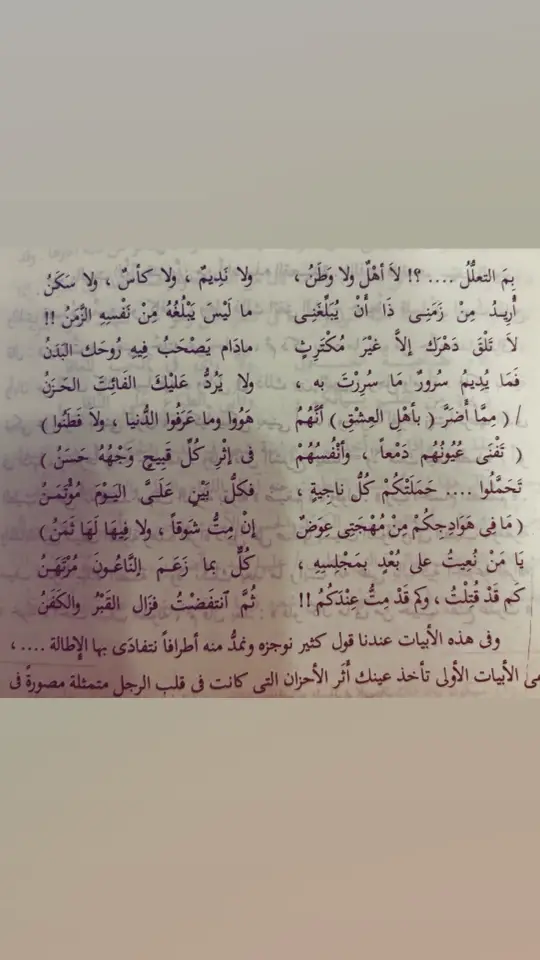 بِمَ التعلُّلُ .... ؟! لاَ أهْلٌ ولا وَطَنُ ، ولا نَدِيمٌ ، ولا كأسٌ ، ولا سَكَنُ
أُرِيدُ مِنْ زَمَنِى ذَا أَنْ يُبَلِّغَنِى ما لَيْسَ يَبْلُغُهُ مِنْ نَفْسِهِ الزَّمَنُ !!
لاَ تَلْقَ دَهْرَك إلاَّ غيْرَ مُكْتَرِثٍ مادَام يَصْحَبُ فِيهِ رُوحَك البَدَنُ
فَمَا يُدِيمُ سُرورٌ مَا سُرِرْتَ به ، ولا يَرُدُّ عَلَيْكَ الفَائِتَ الحَزَنُ
/ ( مِمَّا أَضرَّ ( بأهْلِ العِشْقِ ) أنَّهُمُ هَوُوا وما عَرَفُوا الدُّنيا ، ولاَ فَطَنُوا )
( تَفْنَى عُيُونُهُم دَمْعاً ، وأنْفُسُهُمْ فى إثْرِ كُلِّ قَبِيحٍ وَجْهُهُ حَسَنُ )
تَحَمَّلُوا .... حَمَلَتْكُمْ كُلُّ ناجِيةٍ ، فكلُّ بَيْنٍ عَلَىَّ اليَوْمَ مُؤْتَمَنُ
( مَا فِى هَوَادِجِكُمْ مِنْ مُهْجَتِى عِوَضٌ إنْ مِتُّ شَوقاً ، ولا فِيهَا لَهَا ثَمَنُ )
يَا مَنْ نُعِيتُ على بُعْدٍ بمَجْلِسِهِ ، كُلٌّ بما زَعَمَ النَّاعُونَ مُرْتَهَنُ
كَم قَدْ قُتِلْتُ ، وكم قَدْ مِتُّ عِنْدَكُمُ !! ثُمَّ آنتفَضْتُ فزَال القَبْرُ والكَفَنُ
وفى هذه الأبيات عندنا قول كثير نوجزه ونمدُّ منه أطرافاً نتفادَى بها الإطالة .... ،
الأبيات الأولى تأخذ عينك أثَر الأحزان التى كانت فى قلب الرجل متمثلة مصورةً فى